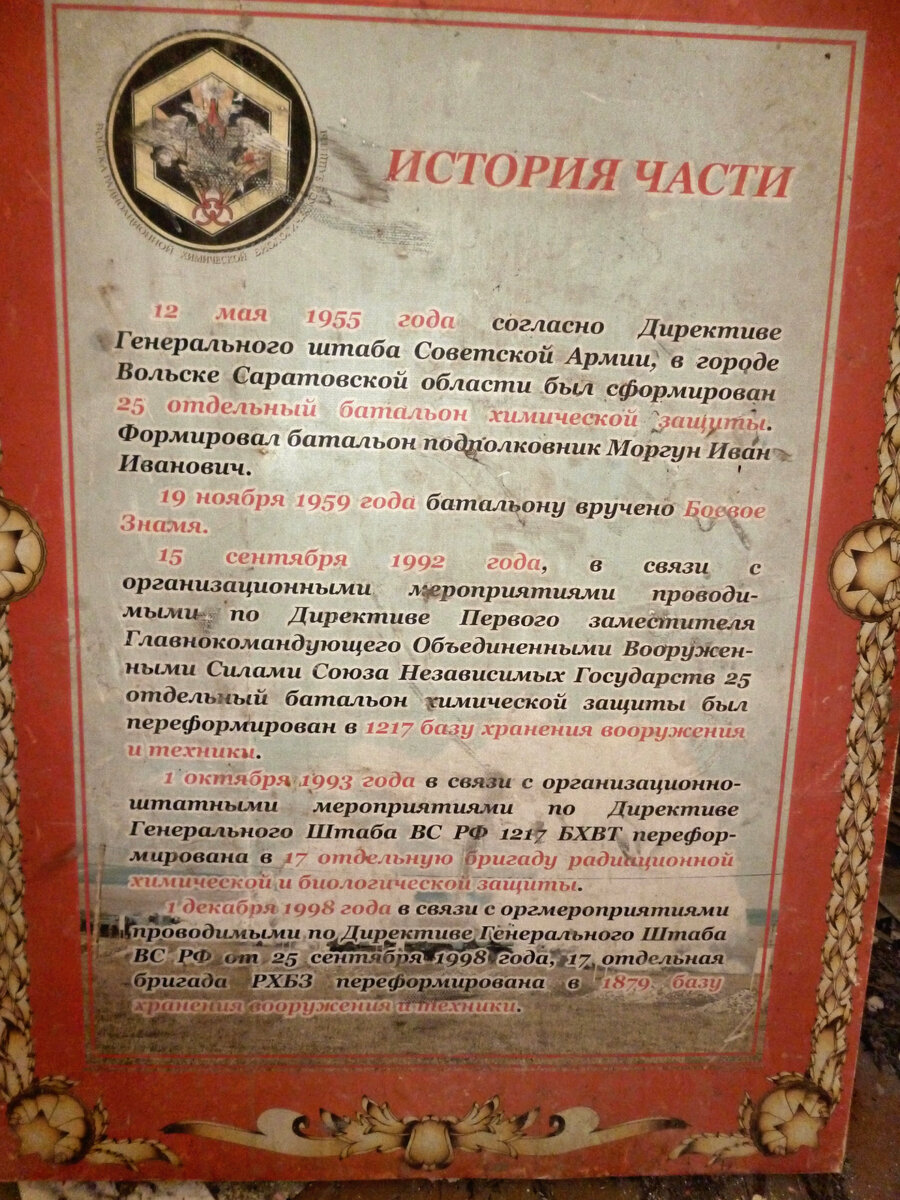 ВОЙСКА РАДИАЦИОННОЙ ХИМИЧЕСКОЙ БИОЛОГИЧЕСКОЙ ЗАЩИТЫ
ИСТОРИЯ ЧАСТИ
12 мая 1955 года согласно Директиве
Генерального штаба Советской Армии, в городе
Вольске Саратовской области был сформирован
25 отдельный батальон химической защиты.
Формировал батальон подполковник Моргун Иван
Иванович.
19 ноября 1959 года батальону вручено Боевое
Знамя.
15 сентября 1992 года, в связи с
организационными мероприятиями проводи-
мыми по Директиве Первого заместителя
Главнокомандующего Объединенными Вооружен-
ными Силами Союза Независимых Государств 25
отдельный батальон химической защиты был
переформирован в 1217 базу хранения вооружения
и техники.
1 октября 1993 года в связи с организационно-
штатными мероприятиями по Директиве
Генерального Штаба ВС РФ 1217 БХВТ перефор-
мирована в 17 отдельную бригаду радиационной
химической и биологической защиты.
1 декабря 1998 года в связи с оргмероприятиями
проводимыми по Директиве Генерального Штаба
ВС РФ от 25 сентября 1998 года, 17 отдельная
бригада РХБЗ переформирована в 1879 базу
хранения вооружения и техники.